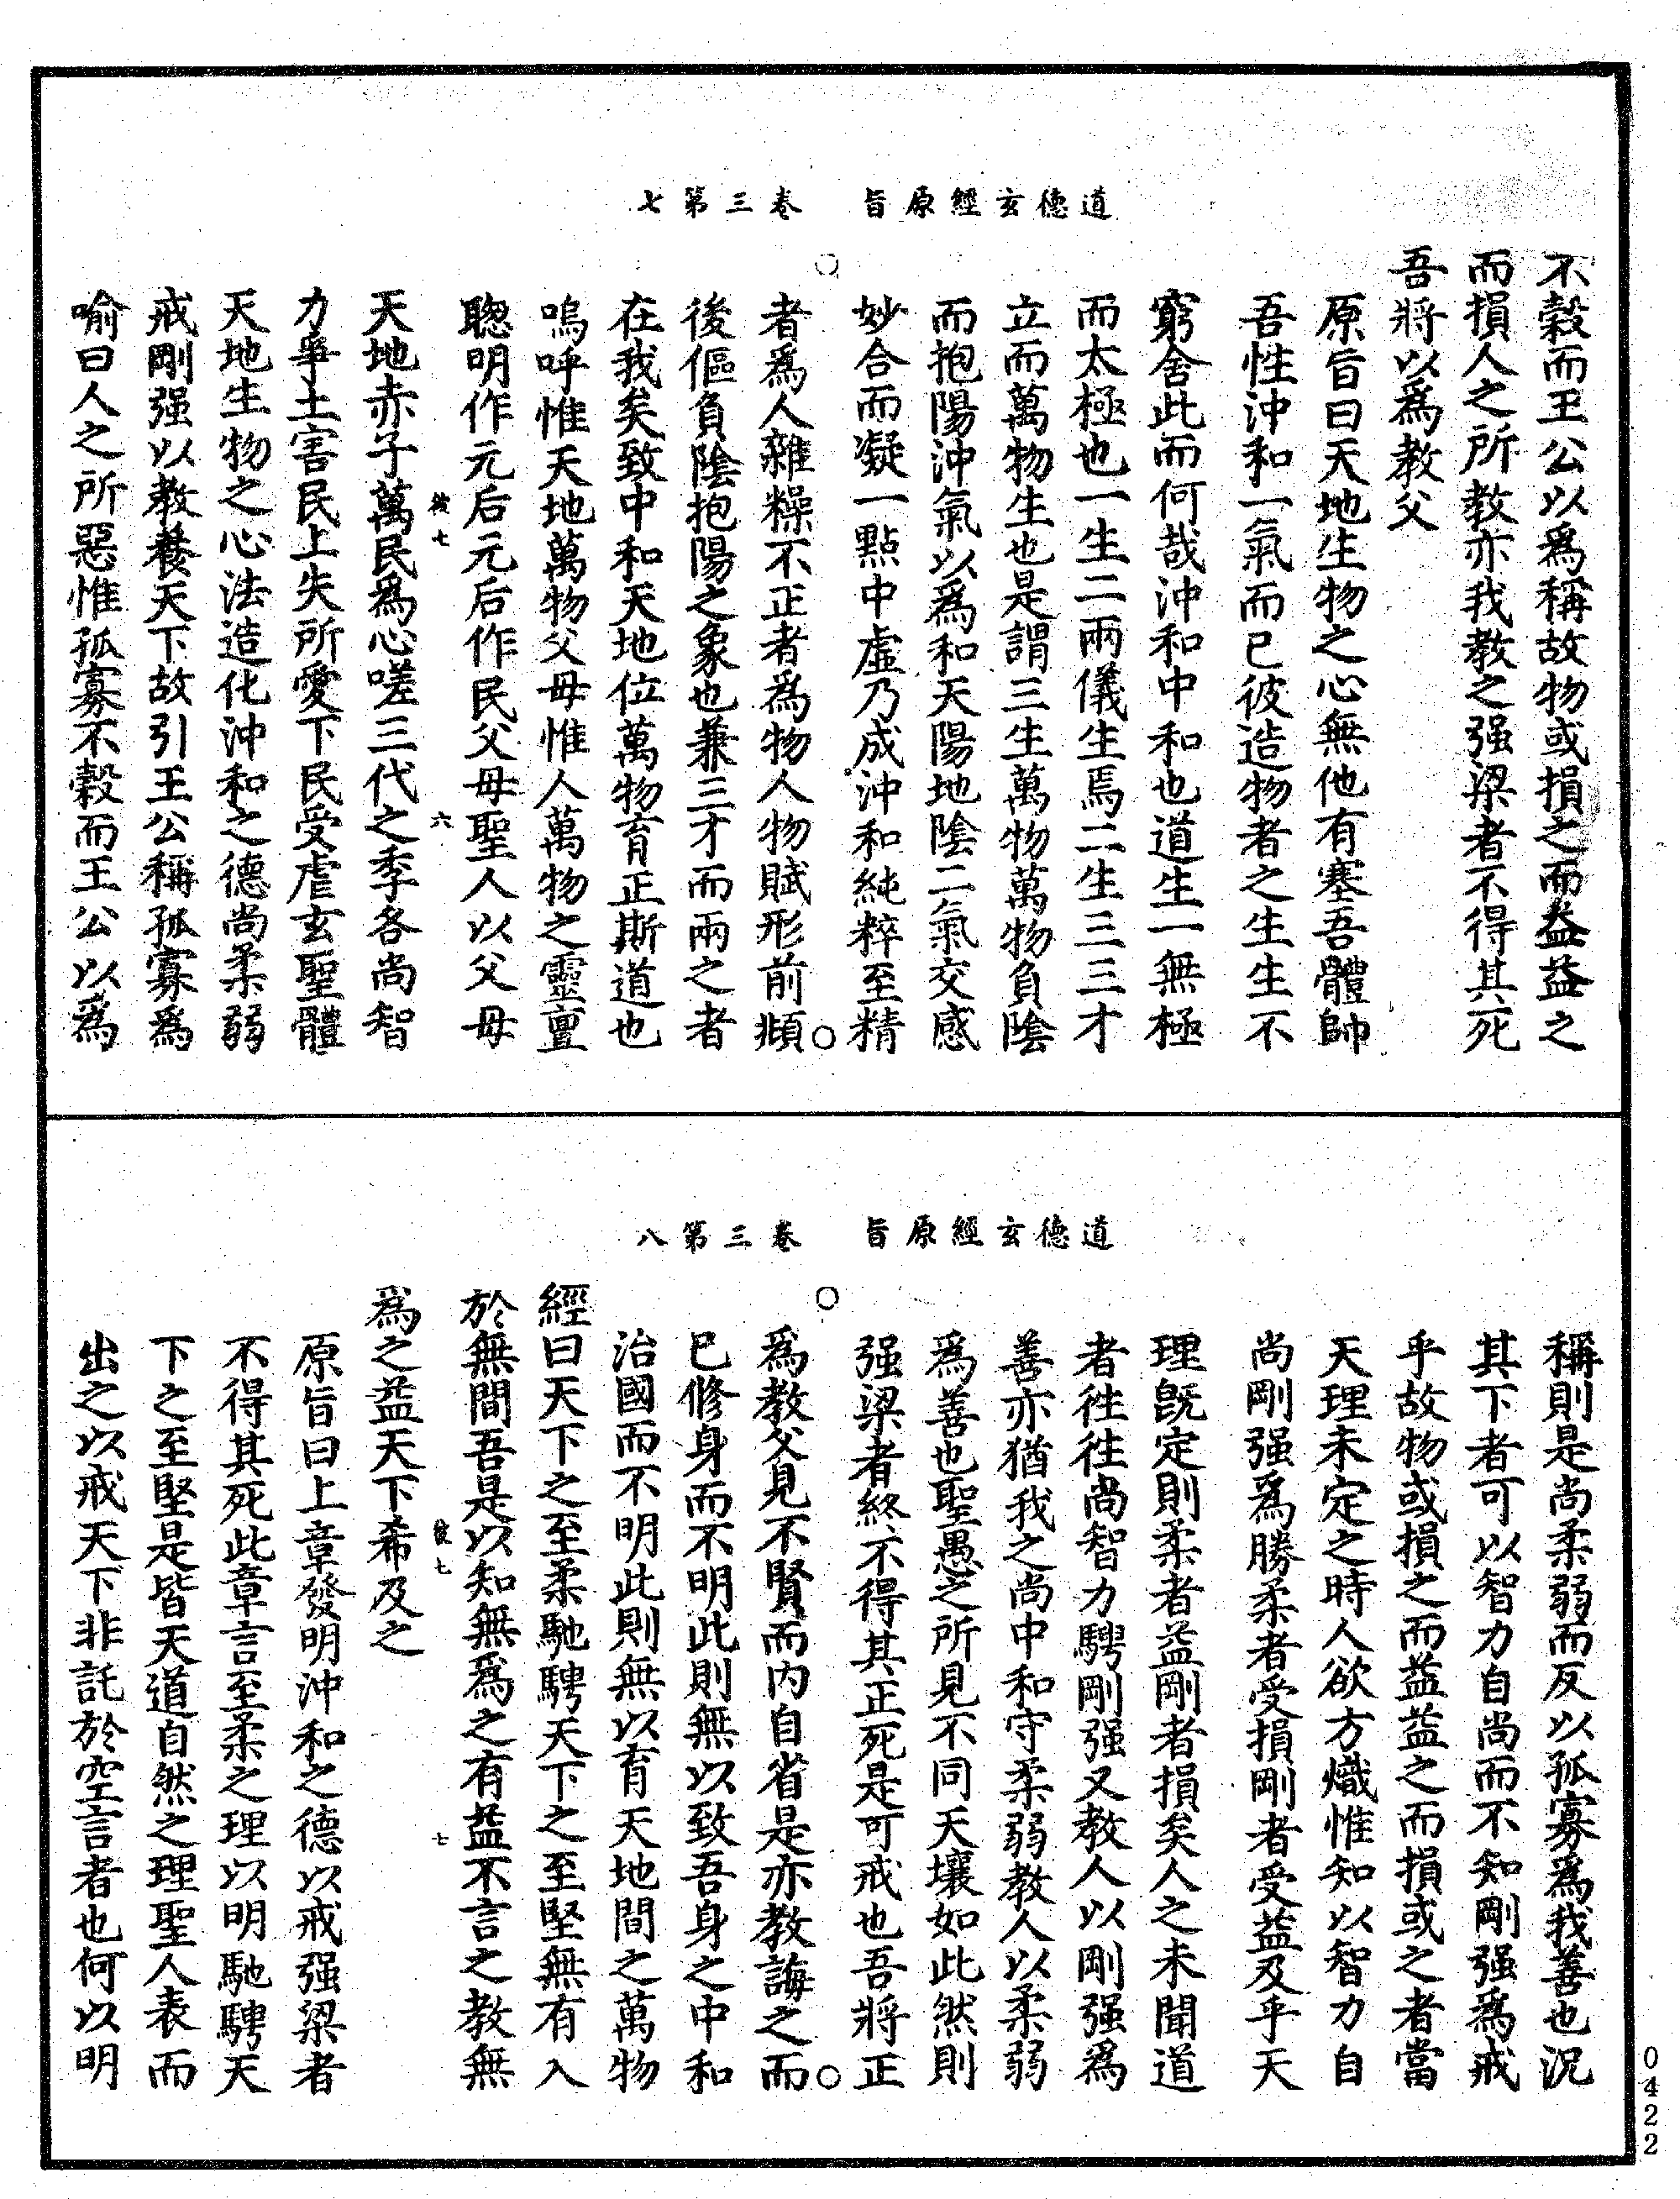 道德玄經原旨　卷三第七
不穀而王公以爲稱故物或損之而益益之
而損人之所教亦我教之强梁者不得其死
吾將以爲教父
原旨曰天地生物之心無他有塞吾體帥
吾性沖和一氣而已彼造物者之生生不
窮舍此而何哉沖和中和也道生一無極
而太極也一生二兩儀生焉二生三三才
立而萬物生也是謂三生萬物萬物負陰
而抱陽沖氣以爲和天陽地陰二氣交感
妙合而凝一點中虛乃成沖和純粹至精
者爲人雜糅不正者爲物人物賦形前頫
後傴負陰抱陽之象也兼三才而兩之者
在我矣致中和天地位萬物育正斯道也
嗚呼惟天地萬物父母惟人萬物之靈亶
聰明作元后元后作民父母聖人以父母
彼七　六
天地赤子萬民爲心嗟三代之季各尚智
力爭土害民上失所愛下民受虐玄聖體
天地生物之心法造化沖和之德尚柔弱
戒剛强以教養天下故引王公稱孤寡爲
喻曰人之所惡惟孤寡不穀而王公以爲
道德玄經原旨　卷三第八
稱則是尚柔弱而反以孤寡爲我善也況
其下者可以智力自尚而不知剛强爲戒
乎故物或損之而益益之而損或之者當
天理未定之時人欲方熾惟知以智力自
尚剛强爲勝柔者受損剛者受益及乎天
理旣定則柔者益剛者損矣人之未聞道
者徃徃尚智力騁剛强又教人以剛强爲
善亦猶我之尚中和守柔弱教人以柔弱
爲善也聖愚之所見不同天壤如此然則
强梁者終不得其正死是可戒也吾將正
爲教父見不賢而内自省是亦教誨之而
已修身而不明此則無以致吾身之中和
治國而不明此則無以育天地間之萬物
經曰天下之至柔馳騁天下之至堅無有入
於無間吾是以知無爲之有益不言之教無
彼七　七
爲之益天下希及之
原旨曰上章發明沖和之德以戒强梁者
不得其死此章言至柔之理以明馳騁天
下之至堅是皆天道自然之理聖人表而
出之以戒天下非託於空言者也何以明
0422